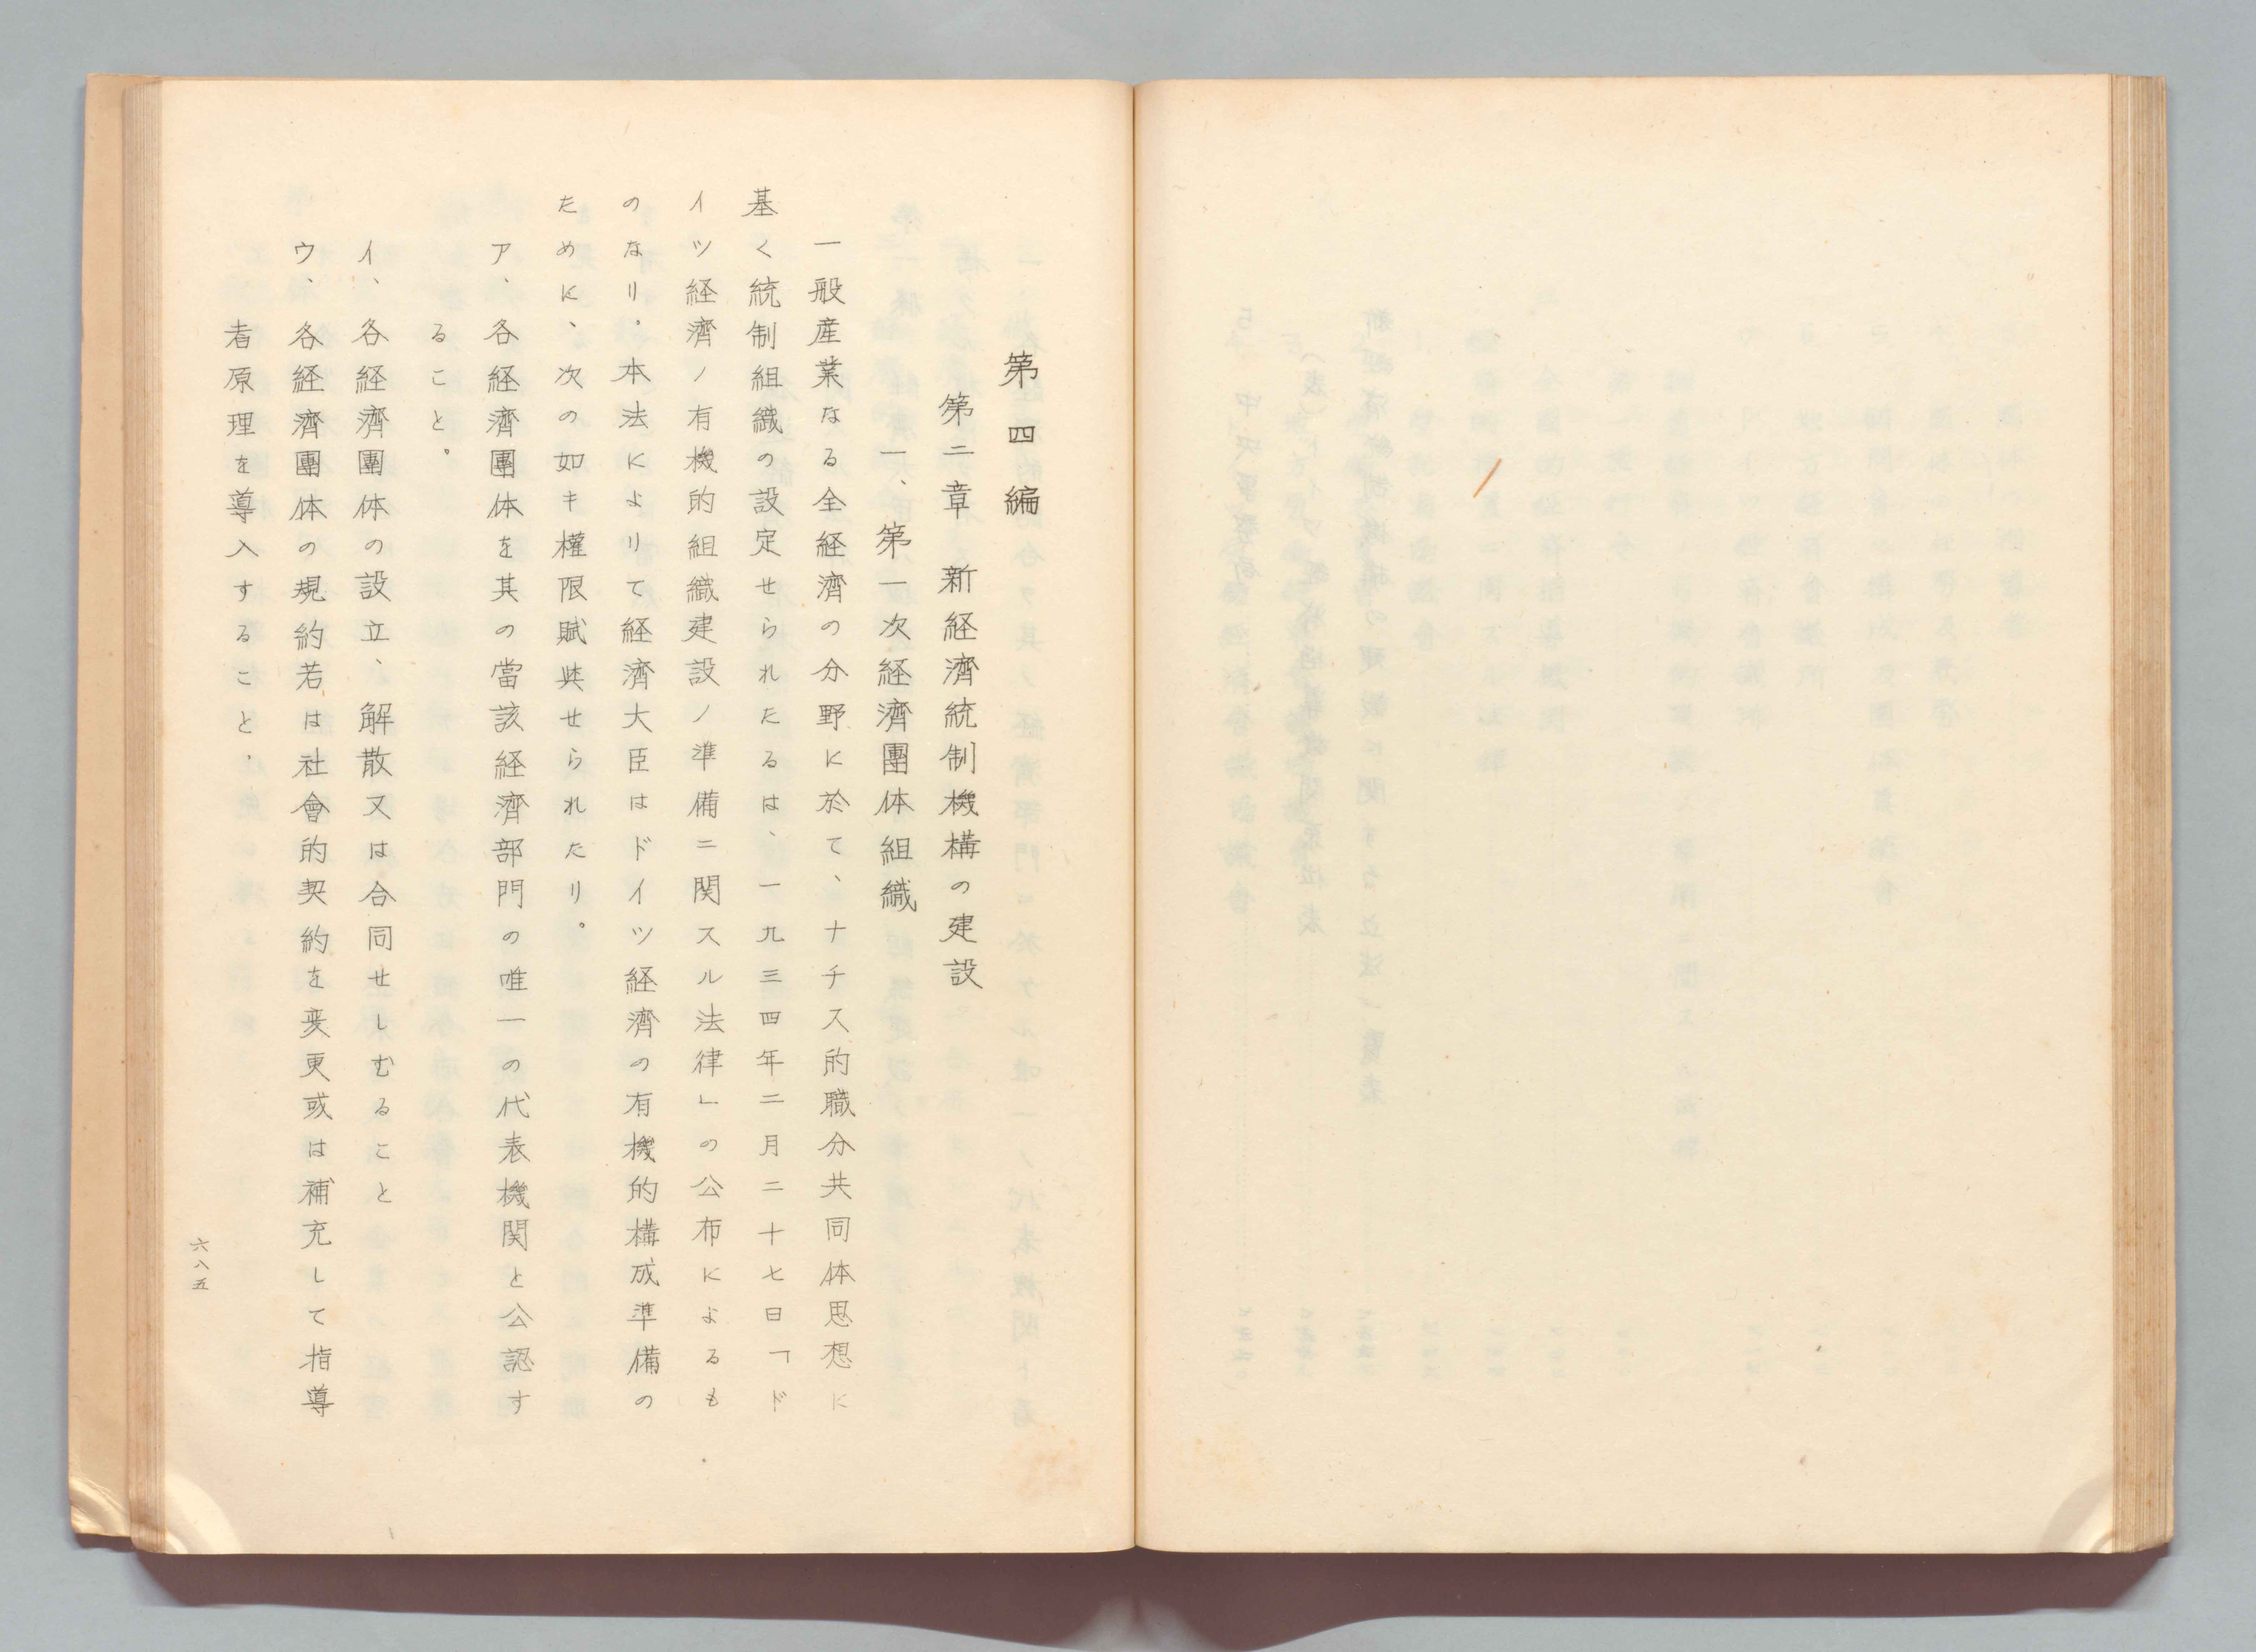 第四編
第二章　新経濟統制機構の建設
一、第一次経濟團体組織
一般産業なる全経濟の分野に於て、ナチス的職分共同体思想に
基く統制組織の設定せられたるは、一九三四年二月二十七日「ド
イツ経濟ノ有機的組織建設ノ準備ニ関スル法律」の公布によるも
のなり。本法によりて経濟大臣はドイツ経濟の有機的構成準備の
ために、次の如キ權限賦與せられたり。
ア、各経濟團体を其の當該経濟部門の唯一の代表機関と公認す
ること。
イ、各経濟團体の設立、解散又は合同せしむること
ウ、各経濟團体の規約若は社會的契約を変更或は補充して指導
者原理を導入すること、
六八五